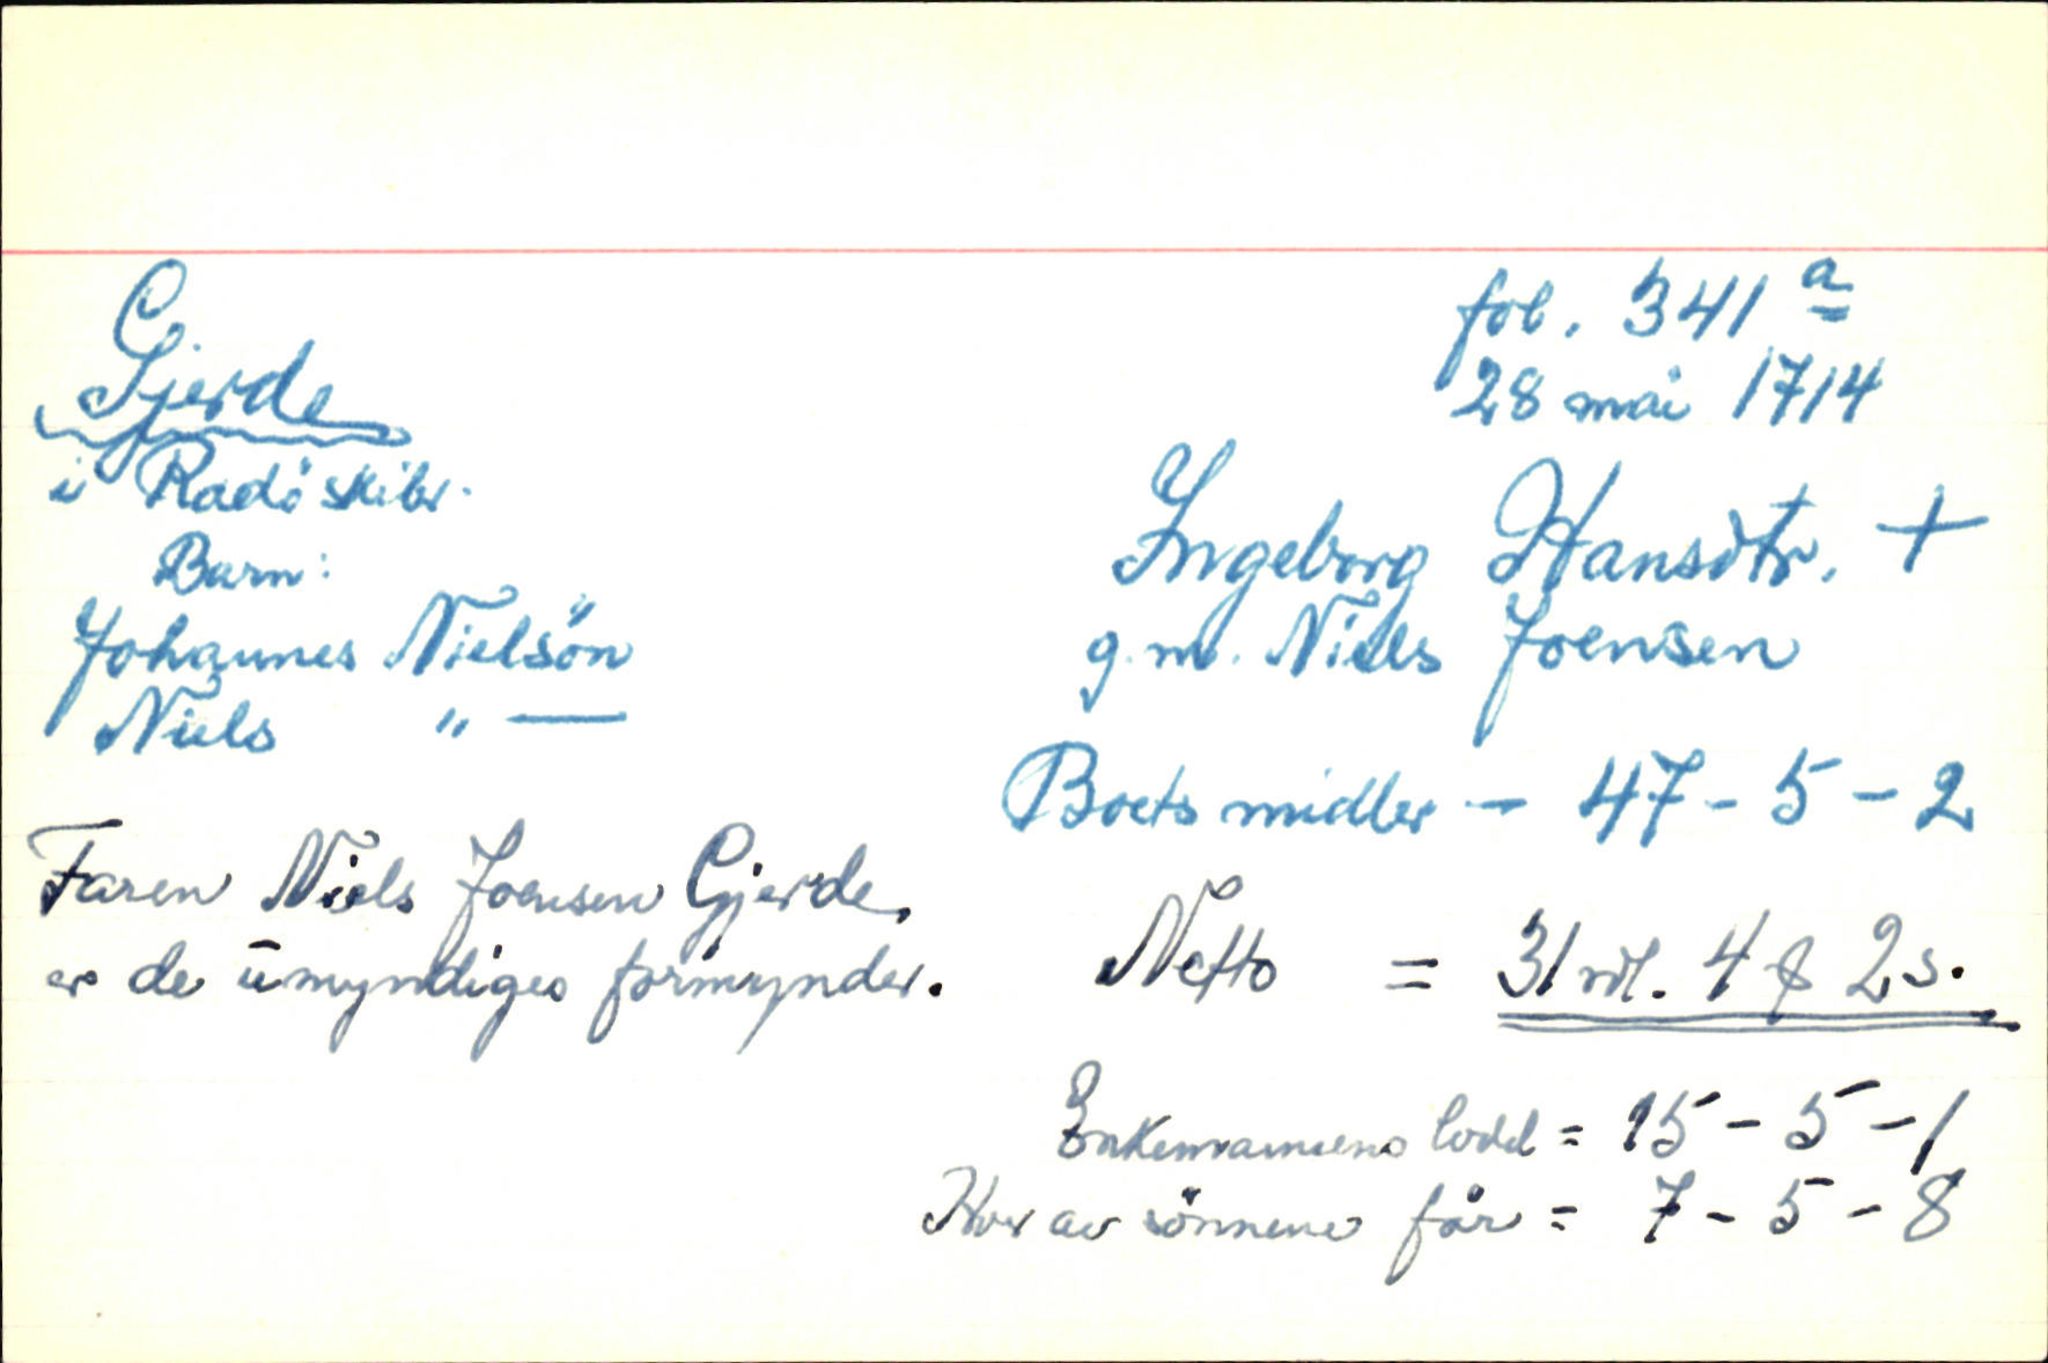 fol. 341 a
28 mai 1714
Gjerde
i Radö skibr.
Barn:
Johannes Nielsön
Niels " —
Ingeborg Hansdtr. +
g.m. Niels Joensen
Boets midler — 47 - 5 - 2
Faren Niels Joensen Gjerde,
er de umyndiges formynder.
Netto = 31 rdl. 4 ƒ 2 s.
Enkemannens lodd = 15 - 5 - 1
Hver av sönnene får = 7 - 5 - 8